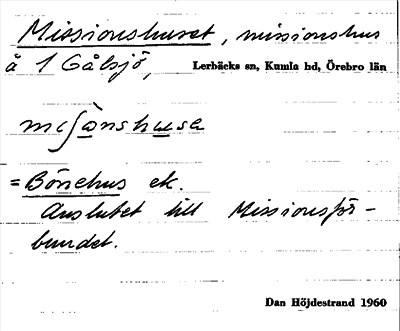 Missionshuset, missionshus
å 1 Gålsjö, Lerbäcks sn, Kumla hd, Örebro län
miʃònshuse
= Bönehus ek.
Anslutet till Missionsför-
bundet.
Dan Höjdestrand 1960